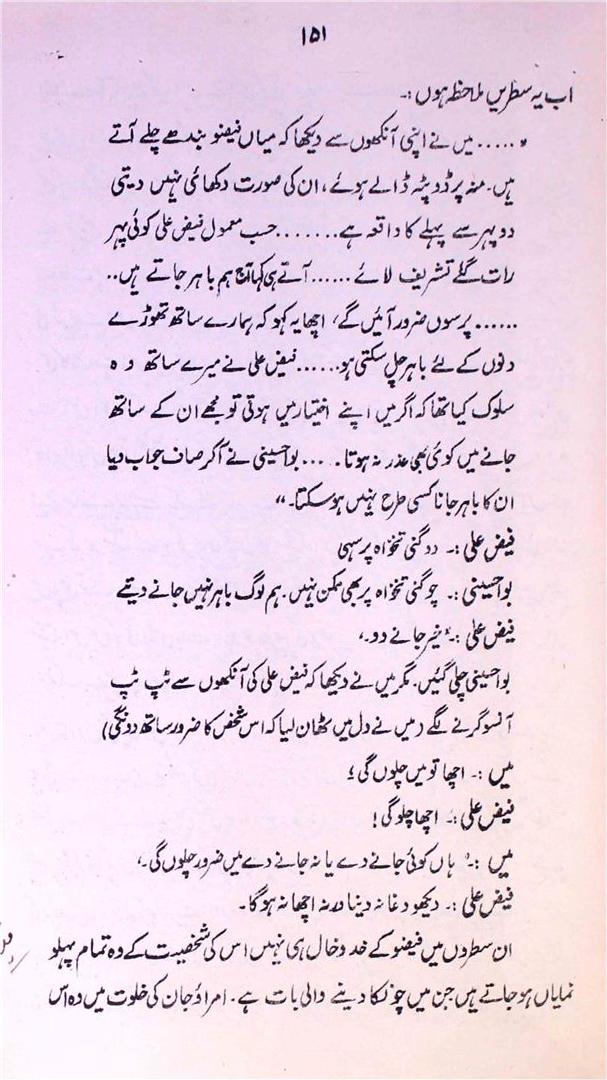 ۱۵۱
اب یہ سطریں ملاحظہ ہوں :۔
" ..... میں نے اپنی آنکھوں سے دیکھا کہ میاں فیضو بندھے چلے آتے
ہیں۔ منہ پر ڈوپٹہ ڈالے ہوئے، ان کی صورت دکھائی نہیں دیتی
دوپہر سے پہلے کا واقعہ ہے ....... حسب معمول فیض علی کوئی پہر
رات گئے تشریف لائے ...... آتے ہی کہا آج ہم باہر جاتے ہیں ..
...... پرسوں ضرور آئیں گے، اچھا یہ کہو کہ ہمارے ساتھ تھوڑے
دنوں کے لئے باہر چل سکتی ہو ...... فیض علی نے میرے ساتھ وہ
سلوک کیا تھا کہ اگر میں اپنے اختیار میں ہوتی تو مجھے ان کے ساتھ
جانے میں کوئی بھی عذر نہ ہوتا .... بوا حسینی نے آکر صاف جواب دیا
ان کا باہر جانا کسی طرح نہیں ہو سکتا۔ "
فیض علی :۔ دو گنی تنخواہ پر سہی
بوا حسینی :۔ چوگنی تنخواہ پر بھی ممکن نہیں۔ ہم لوگ باہر نہیں جانے دیتے
فیض علی :۔ "خیر جانے دو۔،
بوا حسینی چلی گئیں۔ مگر میں نے دیکھا کہ فیض علی کی آنکھوں سے ٹپ ٹپ
آنسو گرنے لگے (میں نے دل میں ٹھان لیا کہ اس شخص کا ضرور ساتھ دونگی)
میں :۔ اچھا تو میں چلوں گی؛
فیض علی :۔ اچھا چلو گی!
میں :۔ ہاں کوئی جانے دے یا نہ جانے دے میں ضرور چلوں گی۔،
فیض علی :۔ دیکھو دغا نہ دینا ورنہ اچھا نہ ہوگا۔
ان سطروں میں فیضو کے خد و خال ہی نہیں اس کی شخصیت کے وہ تمام پہلو
نمایاں ہو جاتے ہیں جن میں چونکا دینے والی بات ہے۔ امراؤ جان کی خلوت میں وہ اس